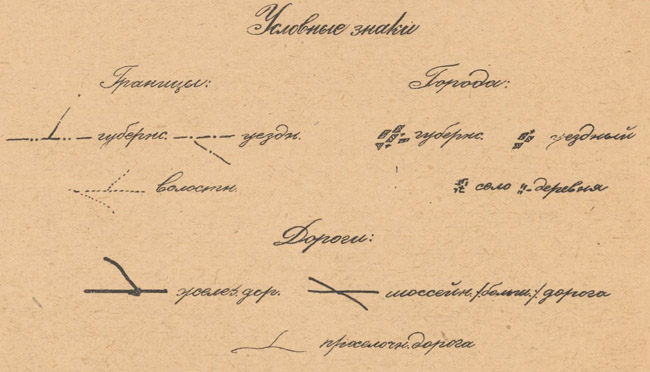 Условные знаки
Границы: Города:
губернс. уездн. губернс. уездный
волостн. село деревня
Дороги:
желез. дор. шоссейн. /больш./ дорога
проселочн. дорога